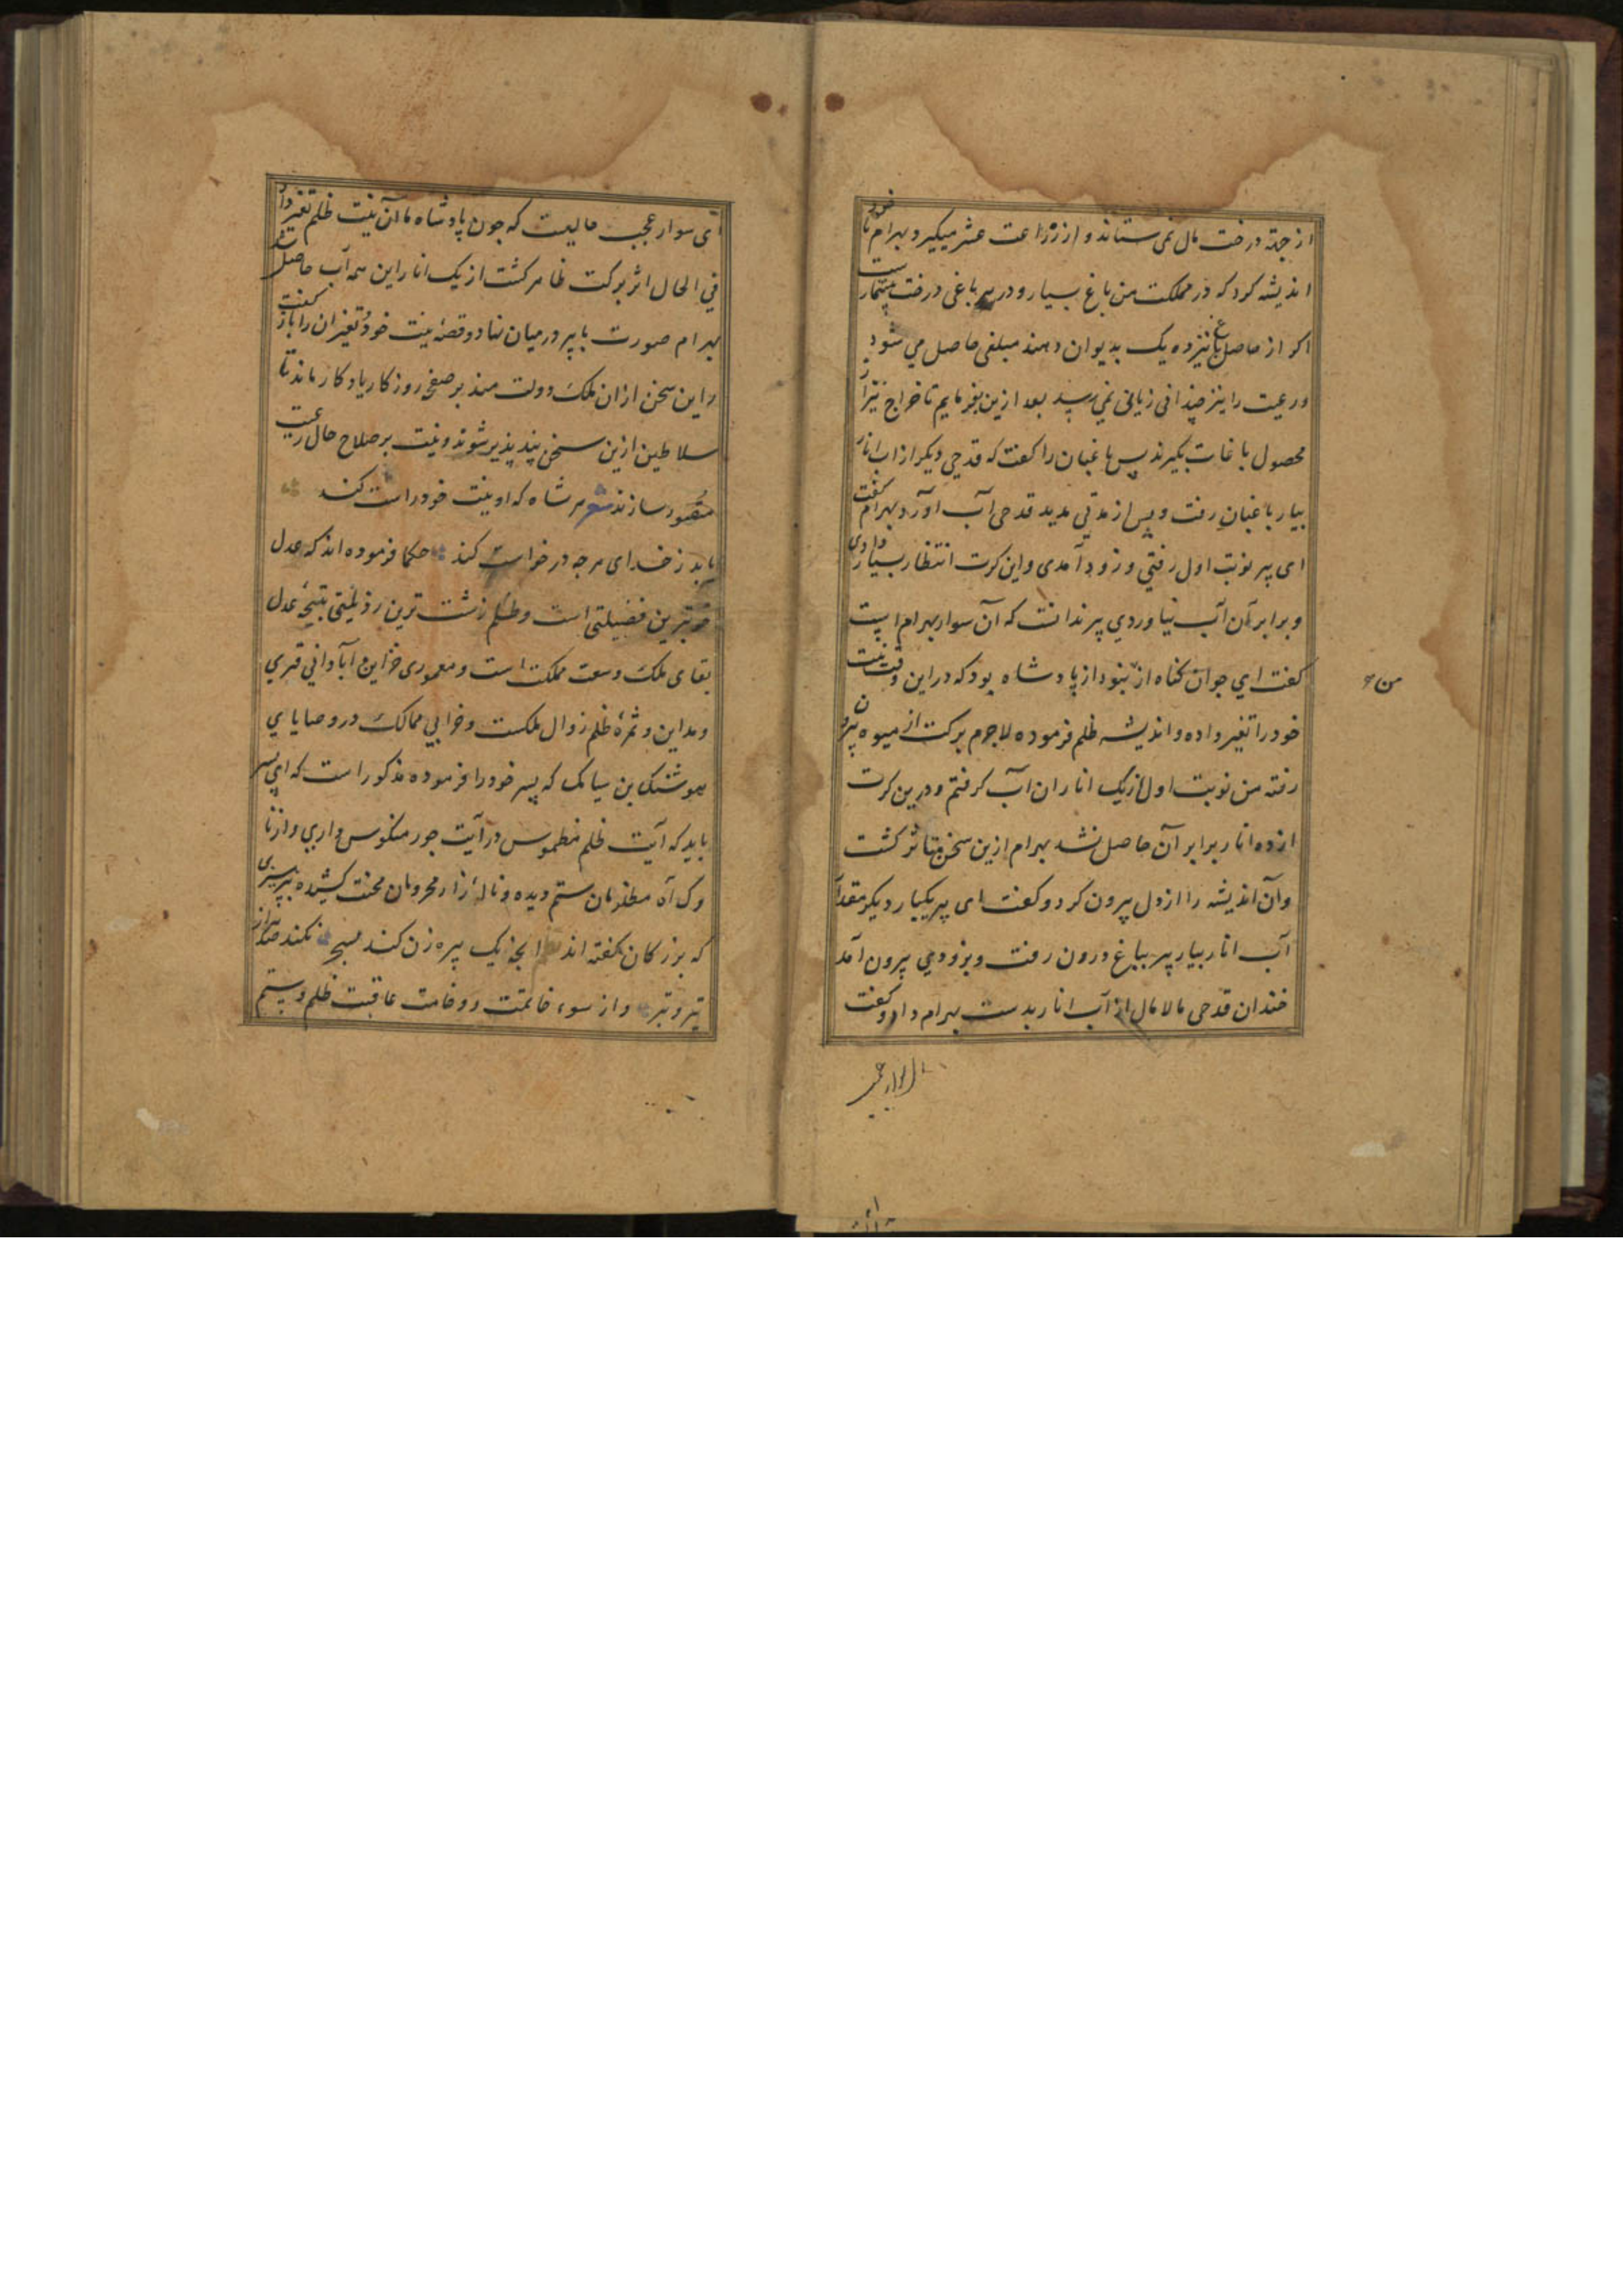 از جهة درخت مال نمی ستاند و از زراعت عشر میکیرد بهرام با خود
اندیشه کرد که در مملکت من باغ بسیار و در هر باغی درخت بیشمارست
اکر از حاصل باغ نیز ده یک بدیوان دهند مبلغی حاصل می شود
و رعیت را نیز چندانی زیانی نمی رسد بعد ازین بفرمایم تا خراج نیز از
محصول باغات بکیرند پس باغبان را کفت که قدحی دیکر از اب انار
بیار باغبان رفت و پس از مدتی مدید قدحی آب آورد بهرام کفت
ای پیر نوبت اول رفتی و زود آمدی و این کرت انتظار بسیار دادی
و برابر آن آب نیاوردی پیر ندانست که آن سوار بهرام است
کفت ای جوان کناه از نبود از پادشاه بود که دراین وقت نیت
من
خود را تغیر داده و اندیشه ظلم فرموده لاجرم برکت از میوه بیرون
رفته من نوبت اول از یک انار ان آب کرفتم و درین کرت
از ده انار برابر آن حاصل نشد بهرام ازین سخن متاثر کشت
و آن اندیشه را از دل بیرون کرد و کفت ای پیر یکبار دیکر مقدار
آب انار بیار پیر بباغ درون رفت و بزودی بیرون آمد
خندان قدحی مالامال از آب انار بدست بهرام داد و کفت
ای سوار عجب
ای سوار عجب حالیست که چون پادشاه ما آن نیت ظلم تغیر داد
فی الحال اثر برکت ظاهر کشت از یک انار این همه آب حاصل شد
بهرام صورت با پیر درمیان نهاد و قصهٔ نیت خود و تغیر ان را باز کفت
و این سخن از ان ملک دولت مند بر صفحه روزکار یادکار ماند تا
سلاطین ازین سخن پند پذیر شوند و نیت بر صلاح حال رعیت
مقصود سازند شعر هر شاه که او نیت خود راست کند
یابد ز خدای هرچه درخواست کند حکما فرموده اند که عدل
خوبترین فضیلتی است و ظلم زشت ترین رذیلتی نتیجهٔ عدل
بقای ملک و سعت مملکت است و معموری خزاین و آبادانی قری
و مداین و ثمرهٔ ظلم زوال ملکست و خرابی ممالک در وصایای
هوشنک بن سیامک که پسر خود را فرموده مذکور است که ای پسر
باید که آیت ظلم منطموس و رآیت جور منکوس داری و از نا
وک آه مظلومان ستم دیده و نالهٔ زار محرومان محنت کشیده بپرهیزی
که بزرکان کفته اند انچه یک پیره زن کند بسحر نکند صد هزار
تیر و تبر و از سوء خاتمت و وخامت عاقبت ظلم و ستم